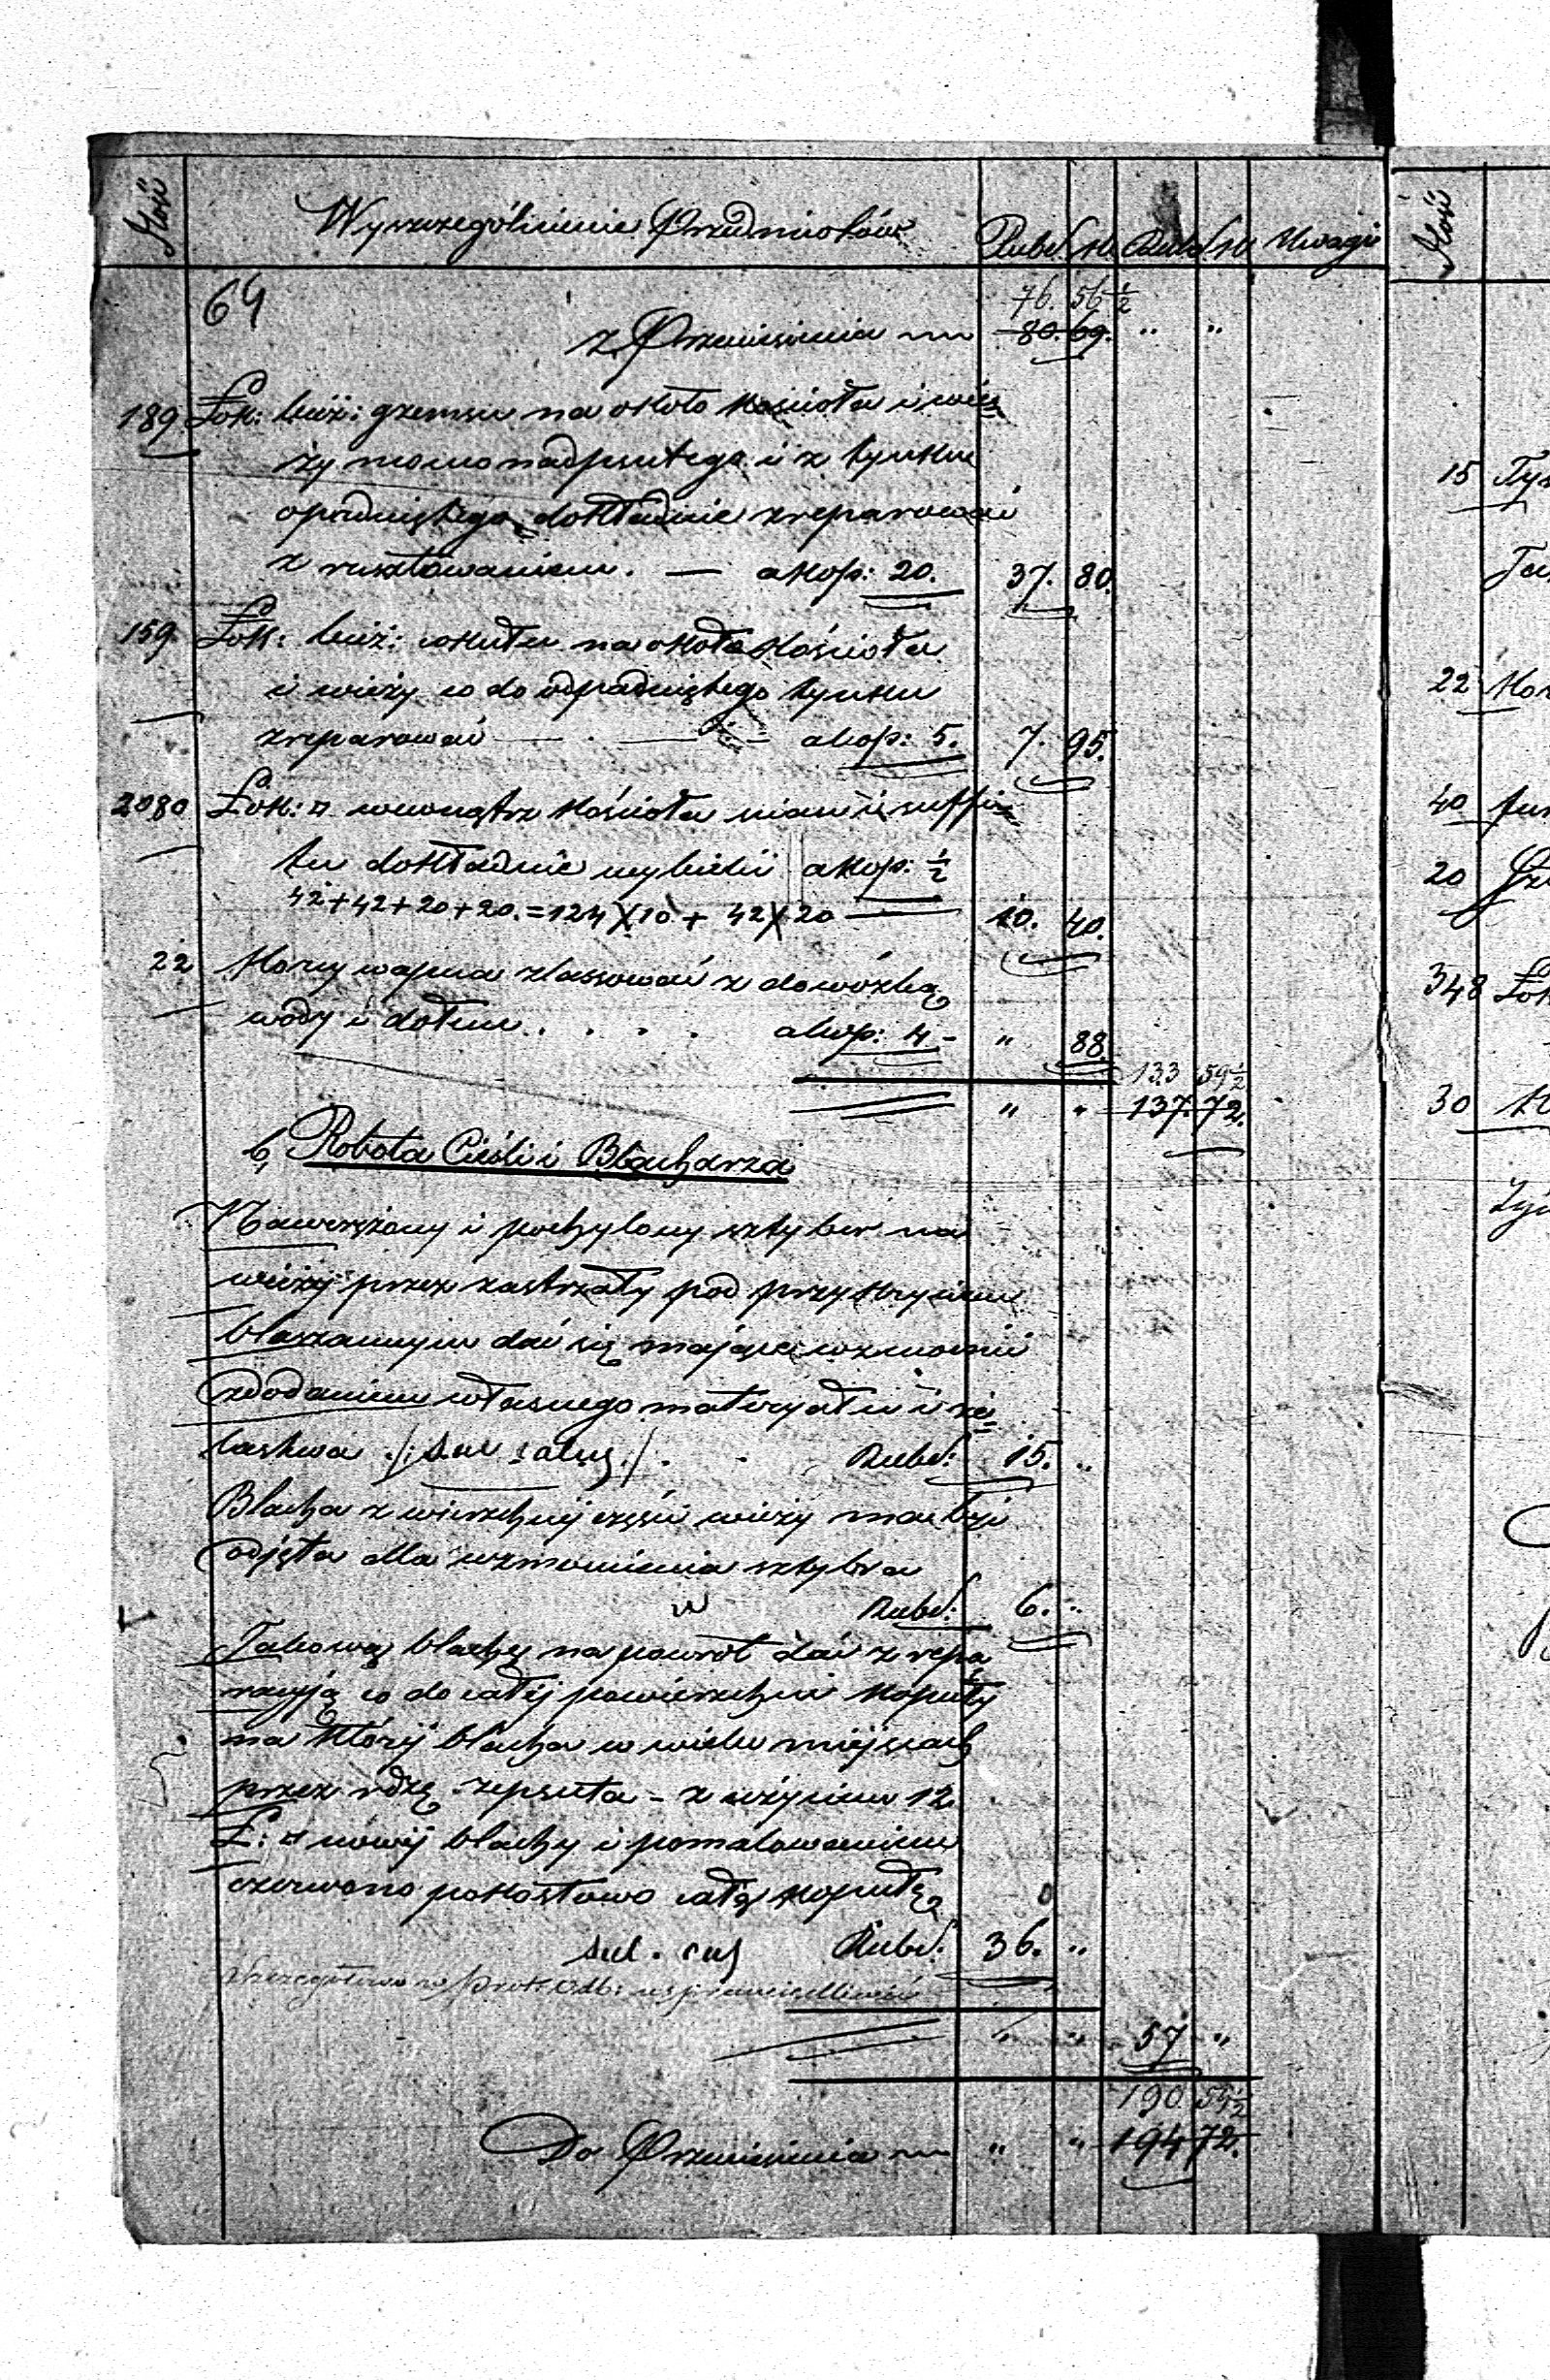 Ilość Wyszczególnienie Przedmiotów Rubel. K. Rubel. K Uwagi
64
76. 56 1/2
z Przeniesienia 80. 69. " "
189 Łok: bież: gzemsu na około Kościoła i wie=
ży mocno nadpsutego i z tynku
opadniętego dokładnie zreparować
z rusztowaniem. — a kop: 20. 37. 80.
159 Łok: bież: cokułu na około Kościoła
i wieży co do odpadniętego tynku
zreparować — a kop: 5. 7. 95.
2080 Łok: □ wewnątrz Kościoła ścian i suffi=
tu dokładnie wybielić a kop: 1/2
42+42+20+20.=124 X 10 + 42 X 20 — 10. 40.
22 Korcy wapna zlassować z dowózką
wody i dołem . . . . a kop: 4 - " 88.
133 59 1/2
" " 137. 72.
b, Robota Cieśli i Blacharza
i pochylony sztyber na
wieży przez zastrzały pod przykryciem
blaszannym dać się mające wzmocnić
z dodaniem własnego materyału i że=
lastwa Rubel: 15. "
Blacha z wierzchniej części wieży ma być
odjęta dla wzmocnienia sztybra
Rubel: 6. "
Takową blachę na powrót dać z repa
racyją co do całej powierzchni Kopuły
na której blacha w wielu miejscach
przez rdzę zepsuta - z użyciem 12
Ł: □ nowej blachy i pomalowaniem
czerwono pokostowo całej Kopuły
Rubel. 36. "
" " 57 "
190 59 1/2
Do Przeniesienia " " 194 72.
Ilość
15
22
40
20
348 Łok
30